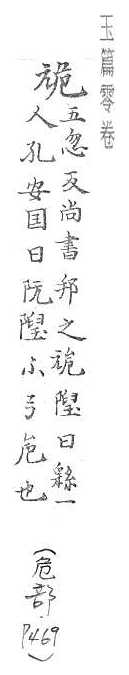 玉篇零卷
祪
五忽反尚書邦之祪隉曰繇一
人孔安囯曰阢隉小弓危也
（危部 P469）